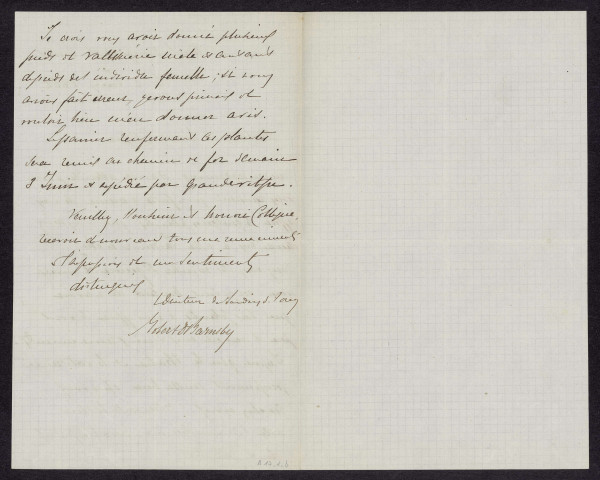 Je crois vous avoir donné plusieurs
pieds de vallisnérie mâle et autant
de pieds de l'individu femelle ; si nous
avions fait erreur, je vous prierais de
vouloir bien m'en donner avis.
Le panier renfermant les plantes
sera remis au chemin de fer demain
3 Juin et expédié par grande vitesse.
Veuillez, Monsieur et honoré Collègue,
recevoir de nouveau tous mes remerciements
et l'expression de mes sentiments
distingués
Directeur du Jardin de Tours
Barnsby